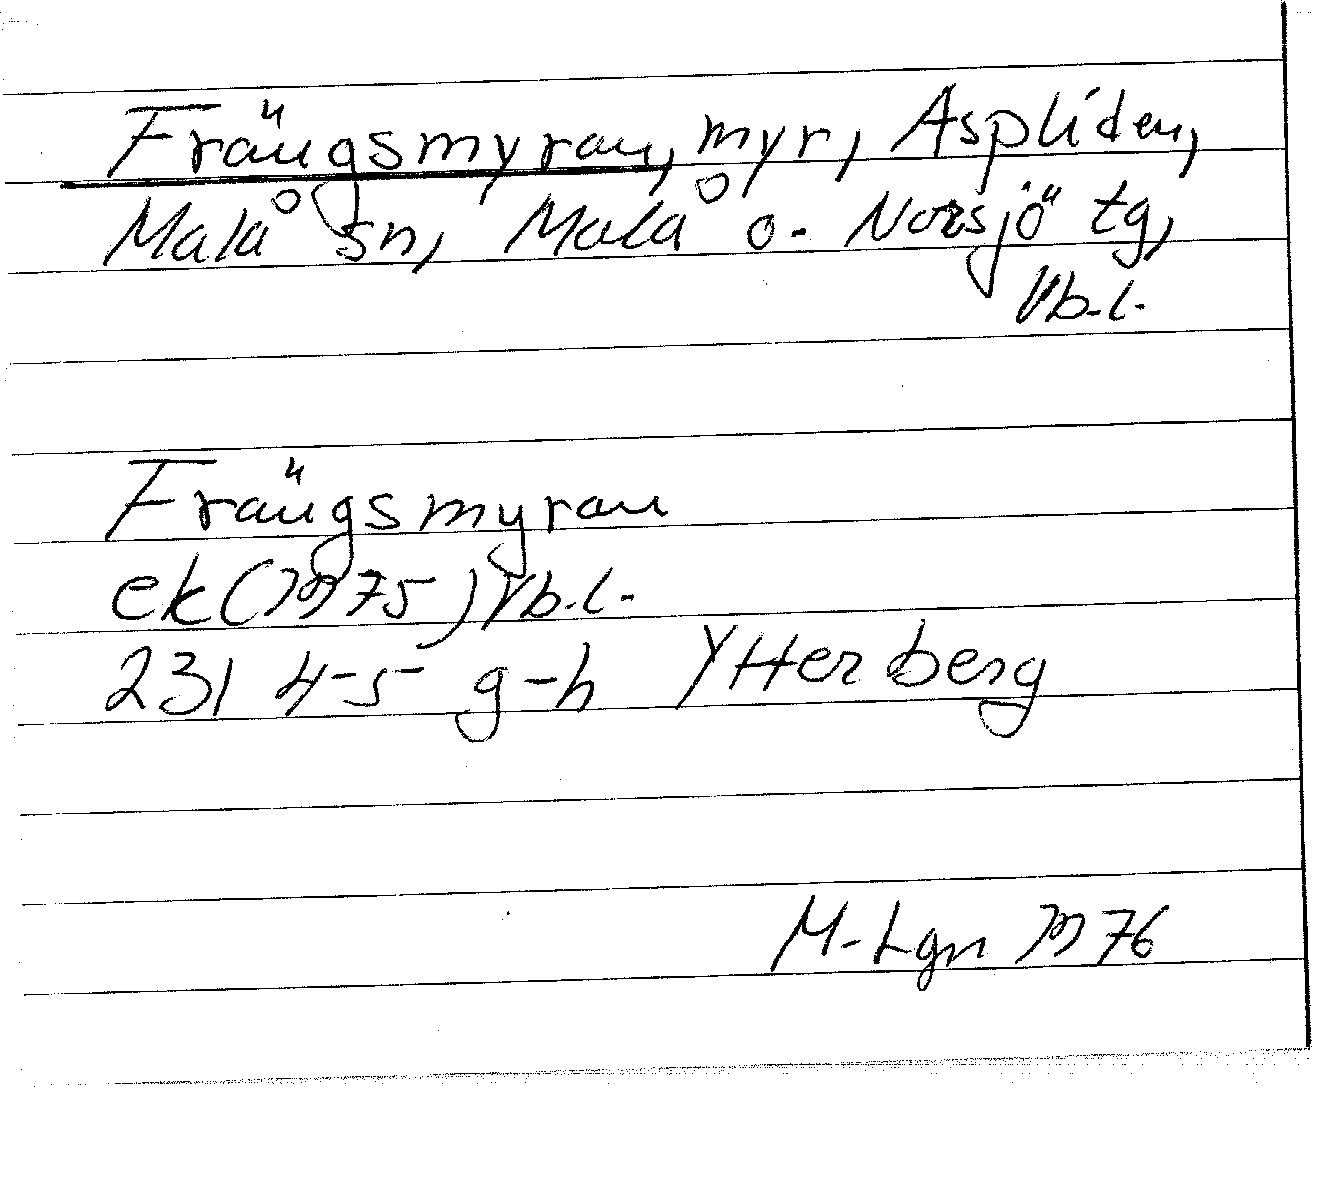 Frängsmyran, myr, Aspliden,
Malå sn, Malå o. Norsjö tg,
Vb.l.
Frängsmyran
ek (1975) Vb.l.
231 4-5 g-h Ytterberg
M-Lgn 1976